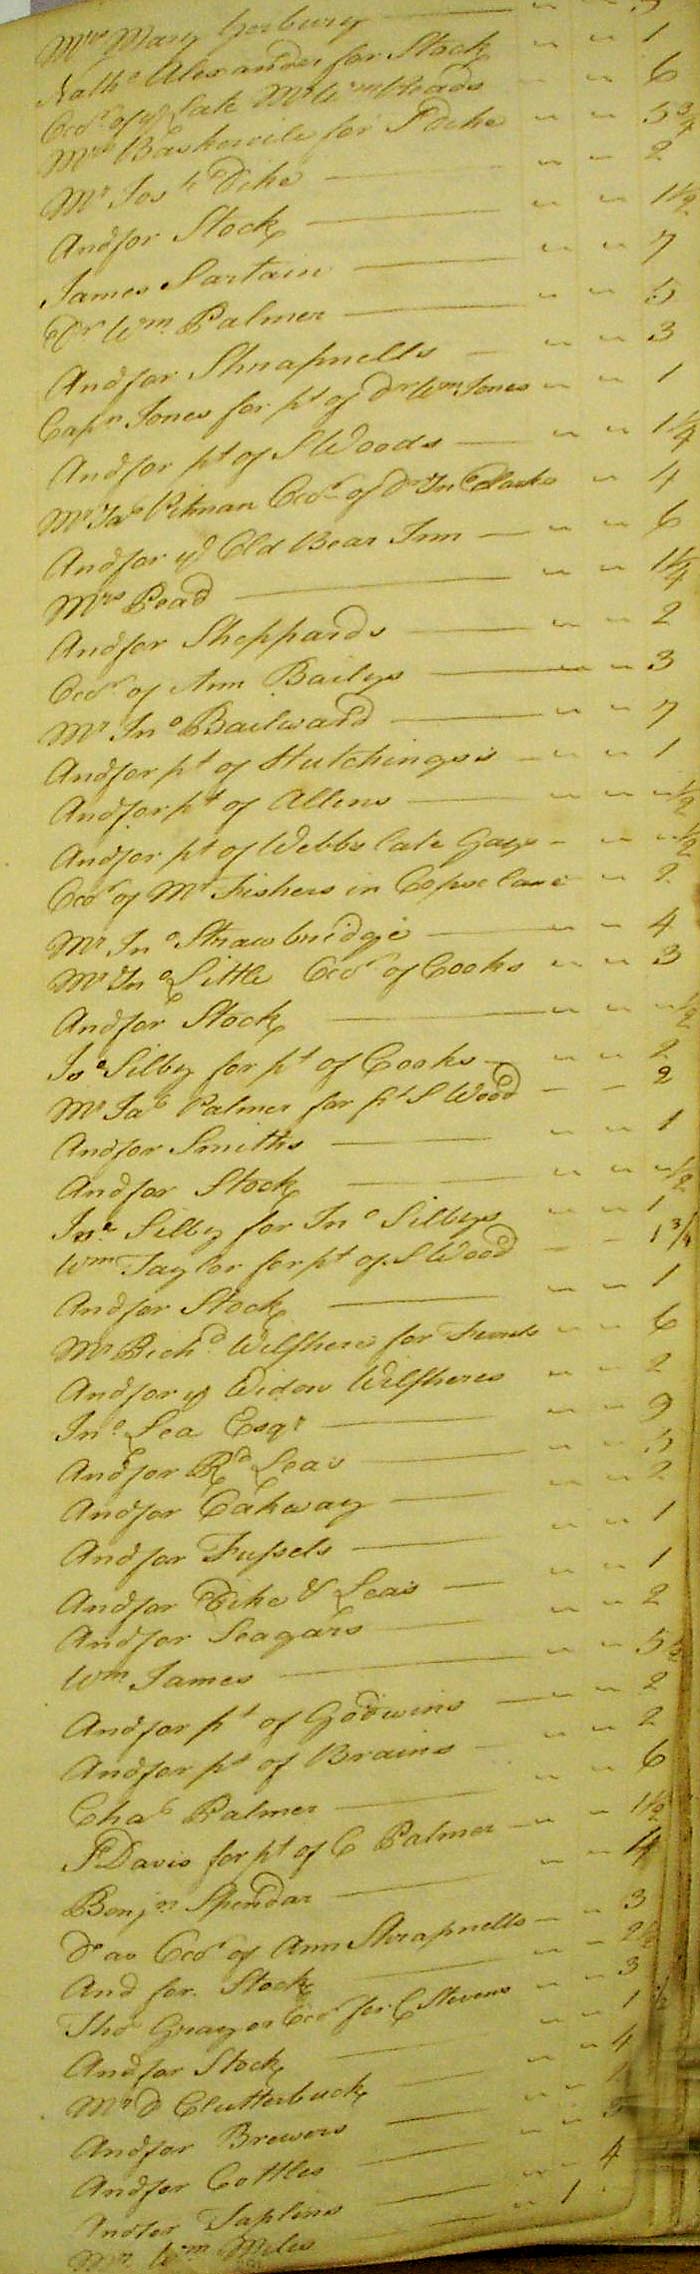 Mrs Mary Yerbury — " " 5
Nathl Alexander for Stock " " 1
Occr of ye late Mr Wm Heads " " 6
Mrs Baskervile for Dike " " 5 3/4
Mr Josh Dike — " " 2
And for Stock — " " 1 1/2
James Sartain — " " 7
Dr Wm Palmer — " " 5
And for Shrapnells — " " 3
Capn Jones for pt of Dr Wm Jones " " 1
And for pt of S Woods — " " 1 1/4
Mr Jas Pitman Occr of Dr Jno Clarke " 4
And for ye Old Bear Inn — " " 6
Mrs Read — " " 1 1/4
And for Sheppards — " " 2
Occr of Ann Bailys — " " 3
Mr Jno Bailward — " " 7
And for pt of Hutchings's — " " 1
And for pt of Allens — " " " 1/2
And for pt of Webbs late Gays — " " 1/2
Occr of Mr Fishers in Copse lane " 2
Mr Jno Strawbridge — " " 4
Mr Jno Little Occr of Cooks " " 3
And for Stock — " " " 1/2
Jo Silby for pt of Cooks — " " 2
Mr Jas Palmer for pt S Wood — — 2
And for Smiths — " " 1
And for Stock — " " " 1/2
Jno Silby for Jno Silbys " " 1
Wm Taylor for pt of S Wood — — 1 3/4
And for Stock — " " 1
Mr Richd Wilshere for " " 6
And for ye Widow Wilsheres " " 2
Jno Lea Esqr — " " 9
And for Rd Leas — " " 5
And for Eakway — " " 2
And for Fussels — " " 1
And for Dike & Leas — " " 1
And for Seagars — " " 2
Wm James — " " 5 1/2
And for pt of Godwins — " " 2
And for pt of Brains — " " 2
Chas Palmer — " " 6
P Davis for pt of C Palmer — " " 1 1/2
Benjn Spendar — " " 14
Do as Occr of Ann Shrapnells — " 3
And for Stock — " " 2 1/2
Thos Grayer Occr for C Stevens " " 3
And for Stock — " " 1 1/2
Mr D Clutterbuck — " " 4
And for Brewers — " "
And for Cottles — " "
And for Taplins — " " 4
Mr Wm Miles — " 1